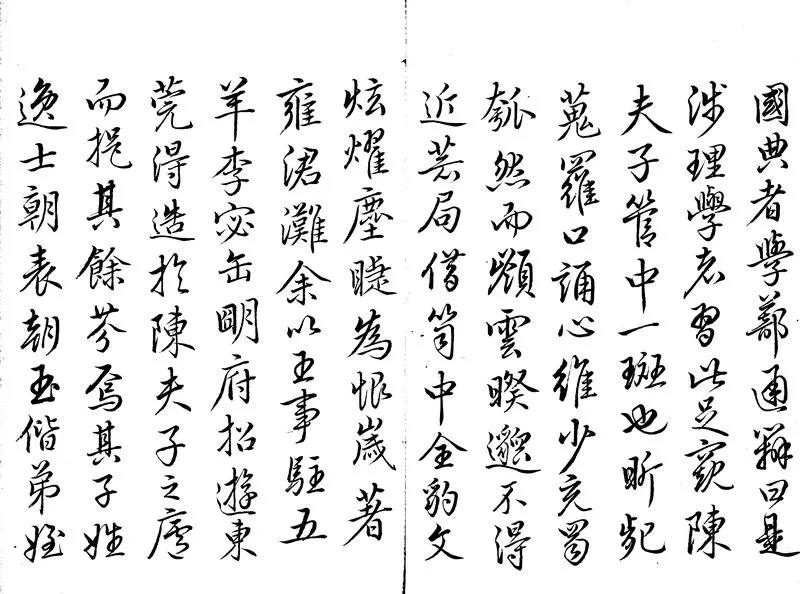 國典者學蔀通辯曰是
涉理學者習此足窺陳
夫子管中一斑也昕
蒐羅口誦心維少充蜀
瓠然而嶺雲暌邈不得
近芸局借笥中全豹文
炫燿塵睫為恨歲著
雍涒灘余以王事駐五
羊李宓缶明府招遊東
莞得造於陳夫子之廬
而挹其餘芬焉其子姓
逸士朝表朝玉偕弟姪